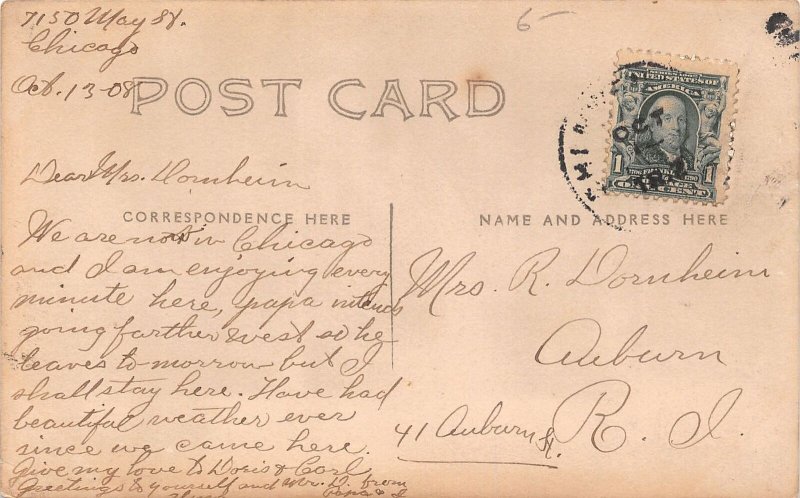 7150 May St.
Chicago
Oct. 13-08
POST CARD
6-
Dear Mrs. Dornheim
CORRESPONDENCE HERE
We are now in Chicago
and I am enjoying every
minute here, papa intends
going farther west so he
leaves to-morrow but I
shall stay here. Have had
beautiful weather ever
since we came here.
Give my love to Doris & Carl
Greetings to yourself and Mr. D. from
Papa & I
SERIES 1902
UNITED STATES OF
AMERICA
1 FRANKLIN 1790 1
ONE CENT
OCT
NAME AND ADDRESS HERE
Mrs. R. Dornheim
Auburn
41 Auburn St. R. I.